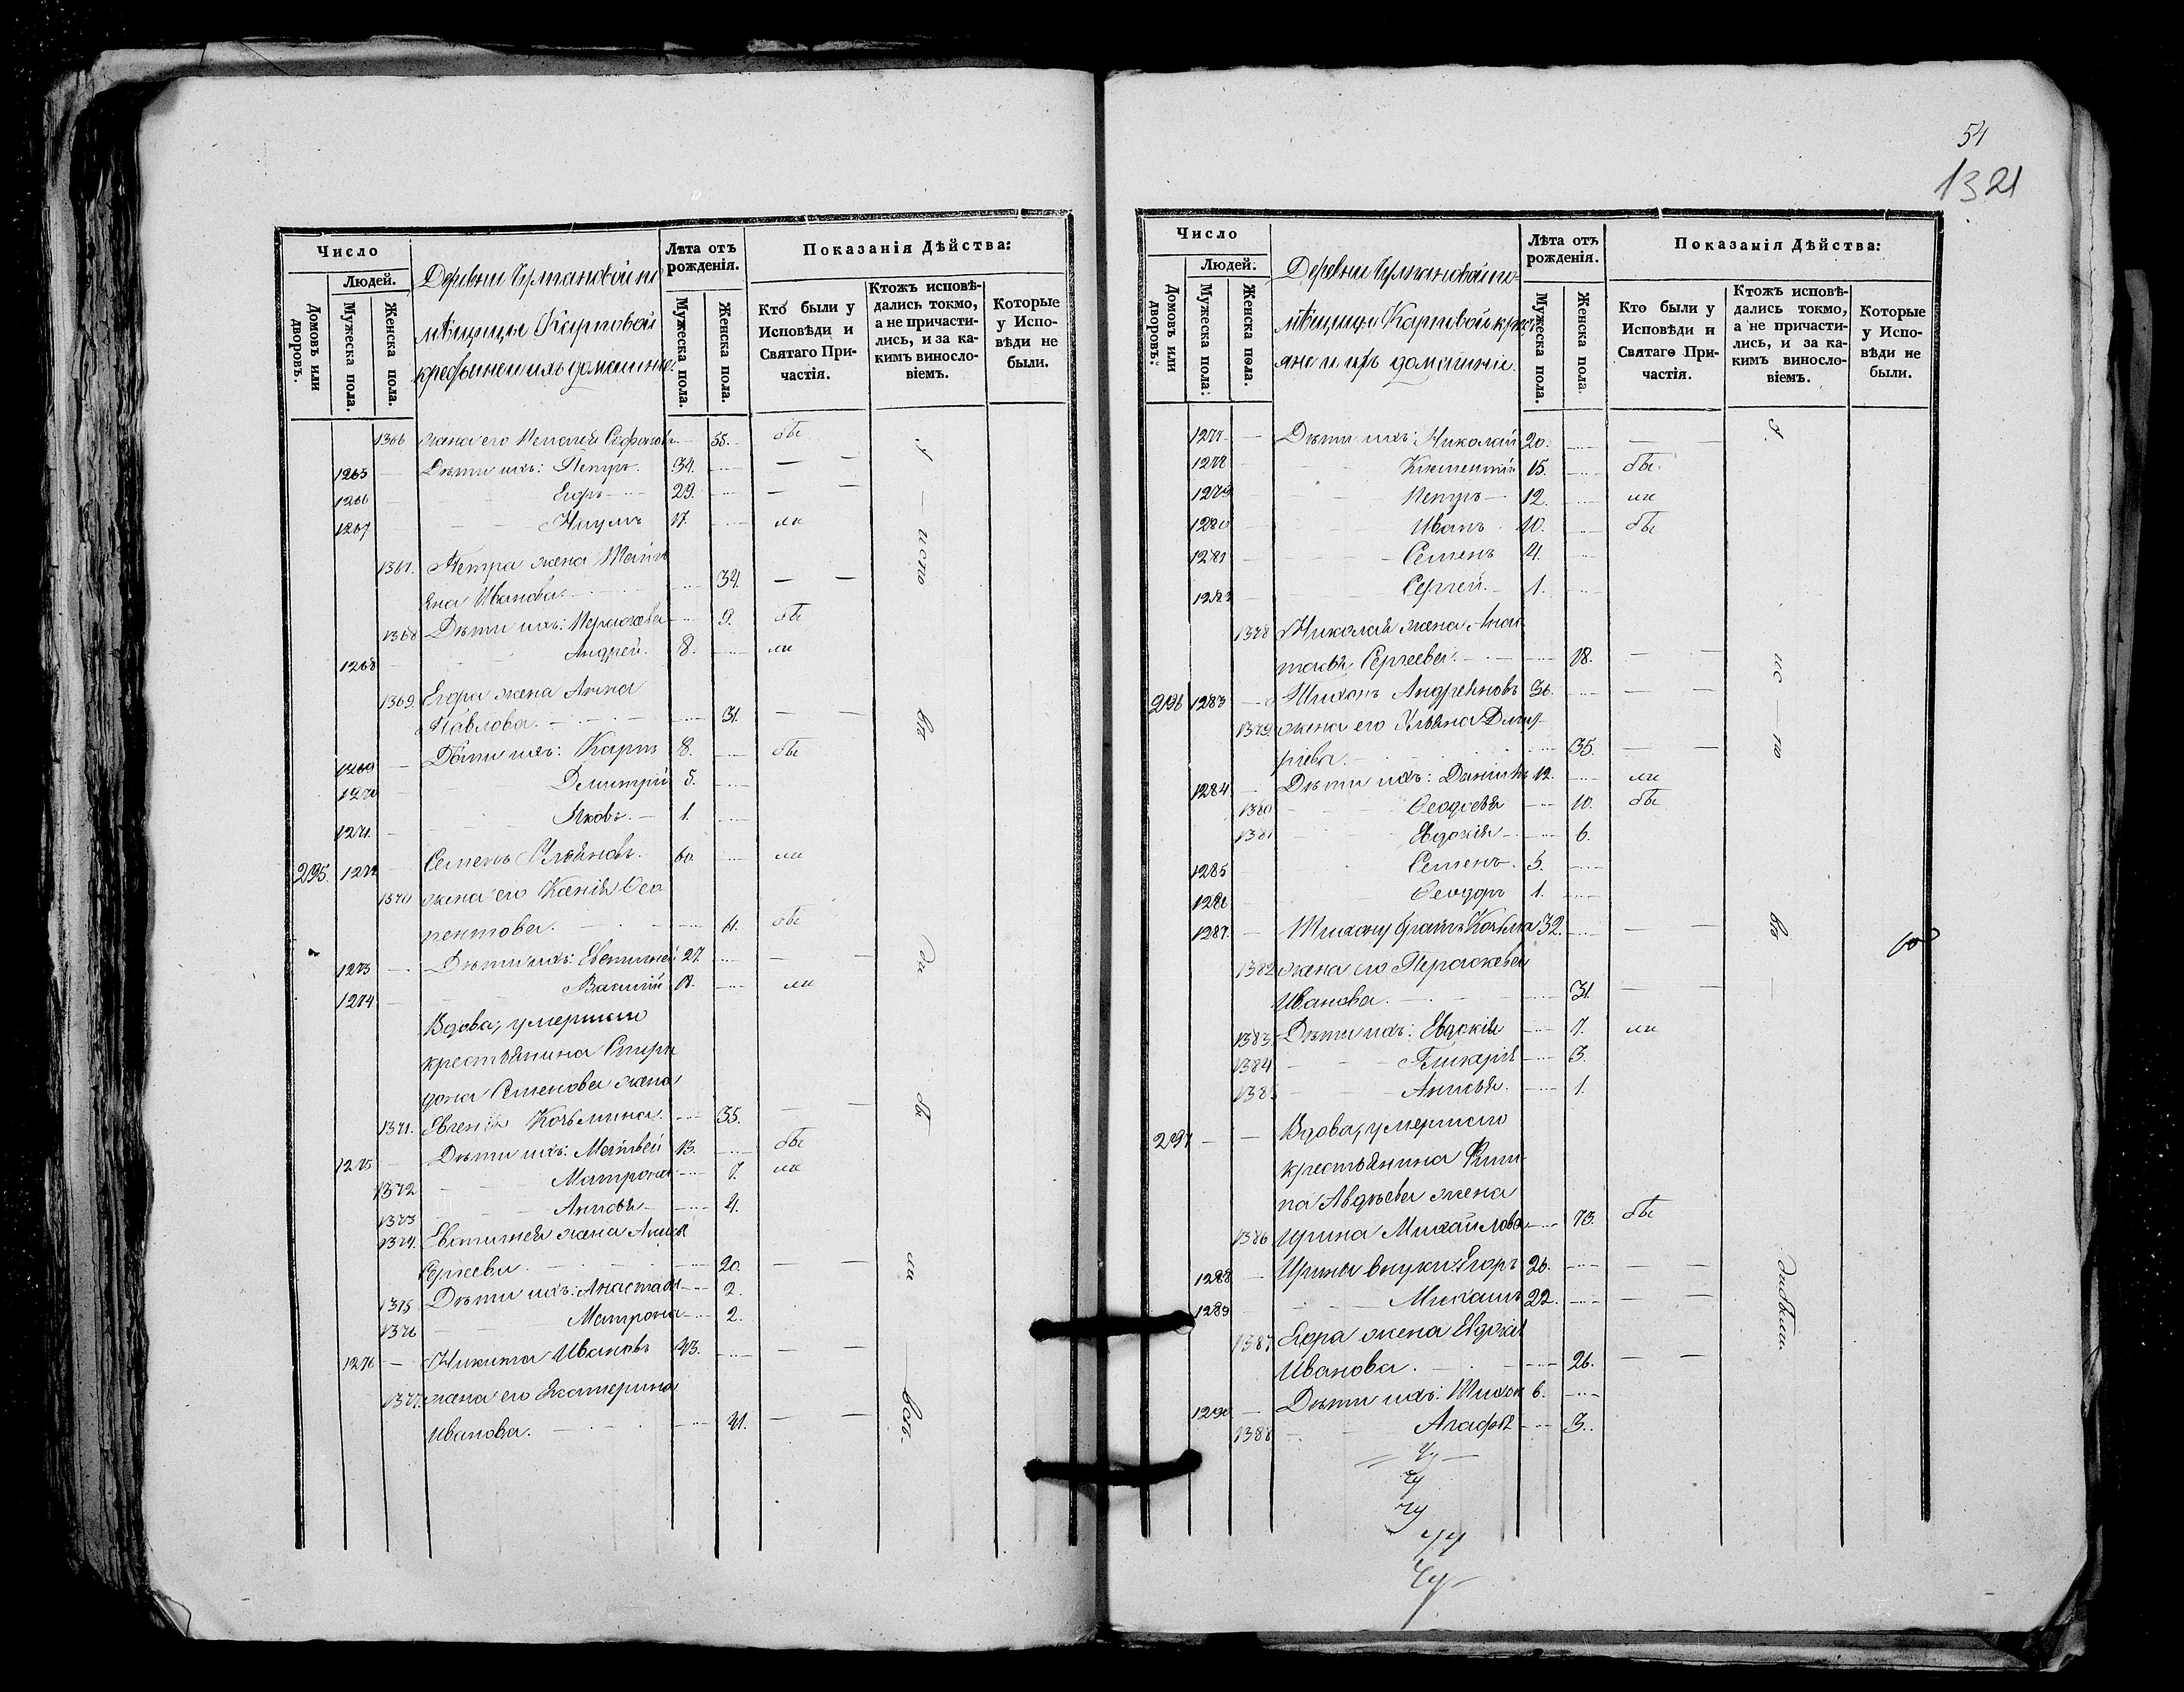 54
1321
Число
Людей.
Домовъ или дворовъ.
Мужеска пола.
Женска пола.
Деревни
мѣщицы Карповой
крестьяне и ихъ домашніе.
Лѣта отъ рожденія.
Мужеска пола.
Женска пола.
Показанія Дѣйства:
Кто были у Исповѣди и Святаго Причастія.
Ктожъ исповѣдались токмо, а не причастились, и за какимъ винословіемъ.
Которые у Исповѣди не были.
1366 жена его 55. бы
1265 Дѣти ихъ: Петръ 34.
1266 Егоръ 29.
1267 Наумъ 17. ли
1367. Петра жена Тать
яна Иванова. 34.
1368 Дѣти ихъ: Параскева 9. бы
1268 Андрей. 8. ли
1369. Егора жена Анна
Павлова. 31.
1269 Дѣти ихъ: Карпъ 8. бы
1270 Дмитрій 5.
1271. Яковъ. 1.
295. 1272 Семенъ 60. ли
1370 жена его Ксенія
рентова. 61. бы
1273 Дѣти ихъ: Евстигней 27.
1274 Василій 18. ли
Вдова, умершаго
крестьянина Спири
дона Семенова жена
1371. Евгенія Козьмина. 35.
1275 Дѣти ихъ: Матвей 13. бы
1372 Матрона 7. ли
1373 Анисья 4.
1374. Евстигнея жена
Сергеева 20.
1375 Дѣти ихъ: Анастасія 2.
1376 Матрона 2.
1276 Никита Ивановъ 43.
1377. жена его Екатерина
Иванова. 41.
у испо вѣ ди бы ли всѣ.
Число
Людей.
Домовъ или дворовъ.
Мужеска пола.
Женска пола.
Деревни
мѣщицы Карповой кресть
яне и ихъ домашніе.
Лѣта отъ рожденія.
Мужеска пола.
Женска пола.
Показанія Дѣйства:
Кто были у Исповѣди и Святаго Причастія.
Ктожъ исповѣдались токмо, а не причастились, и за какимъ винословіемъ.
Которые у Исповѣди не были.
1277 Дѣти ихъ: Николай 20.
1278 Климентій 15. бы
1279 Петръ 12. ли
1280 Иванъ 10. бы
1281 Семенъ 4.
1282 Сергей. 1.
1378 Николая жена Анас
тасья Сергеева. 18.
296 1283 Тихонъ Андреяновъ 36.
1379. жена его Ульяна Дмит
ріева. 35.
1284 Дѣти ихъ: 12. ли
1380 10. бы
1381 Евдокія 6.
1285 Семенъ. 5.
1286 Ѳеодоръ 1.
1287. Тихону братъ Козьма 32.
1382 жена его Параскева
Иванова. 31.
1383. Дѣти ихъ: Евдокія 7. ли
1384 Гликерія 3.
1385 Анисья. 1.
297 Вдова, умершаго
крестьянина Филип
па Авдѣева жена
1386 Ирина Михайлова 73. бы
1288 Ирины внуки: Егоръ 26.
1289 Михаилъ 22.
1387 Егора жена Евдокія
Иванова. 26.
1290 Дѣти ихъ: Тихонъ 6.
1388 Агафья 3.